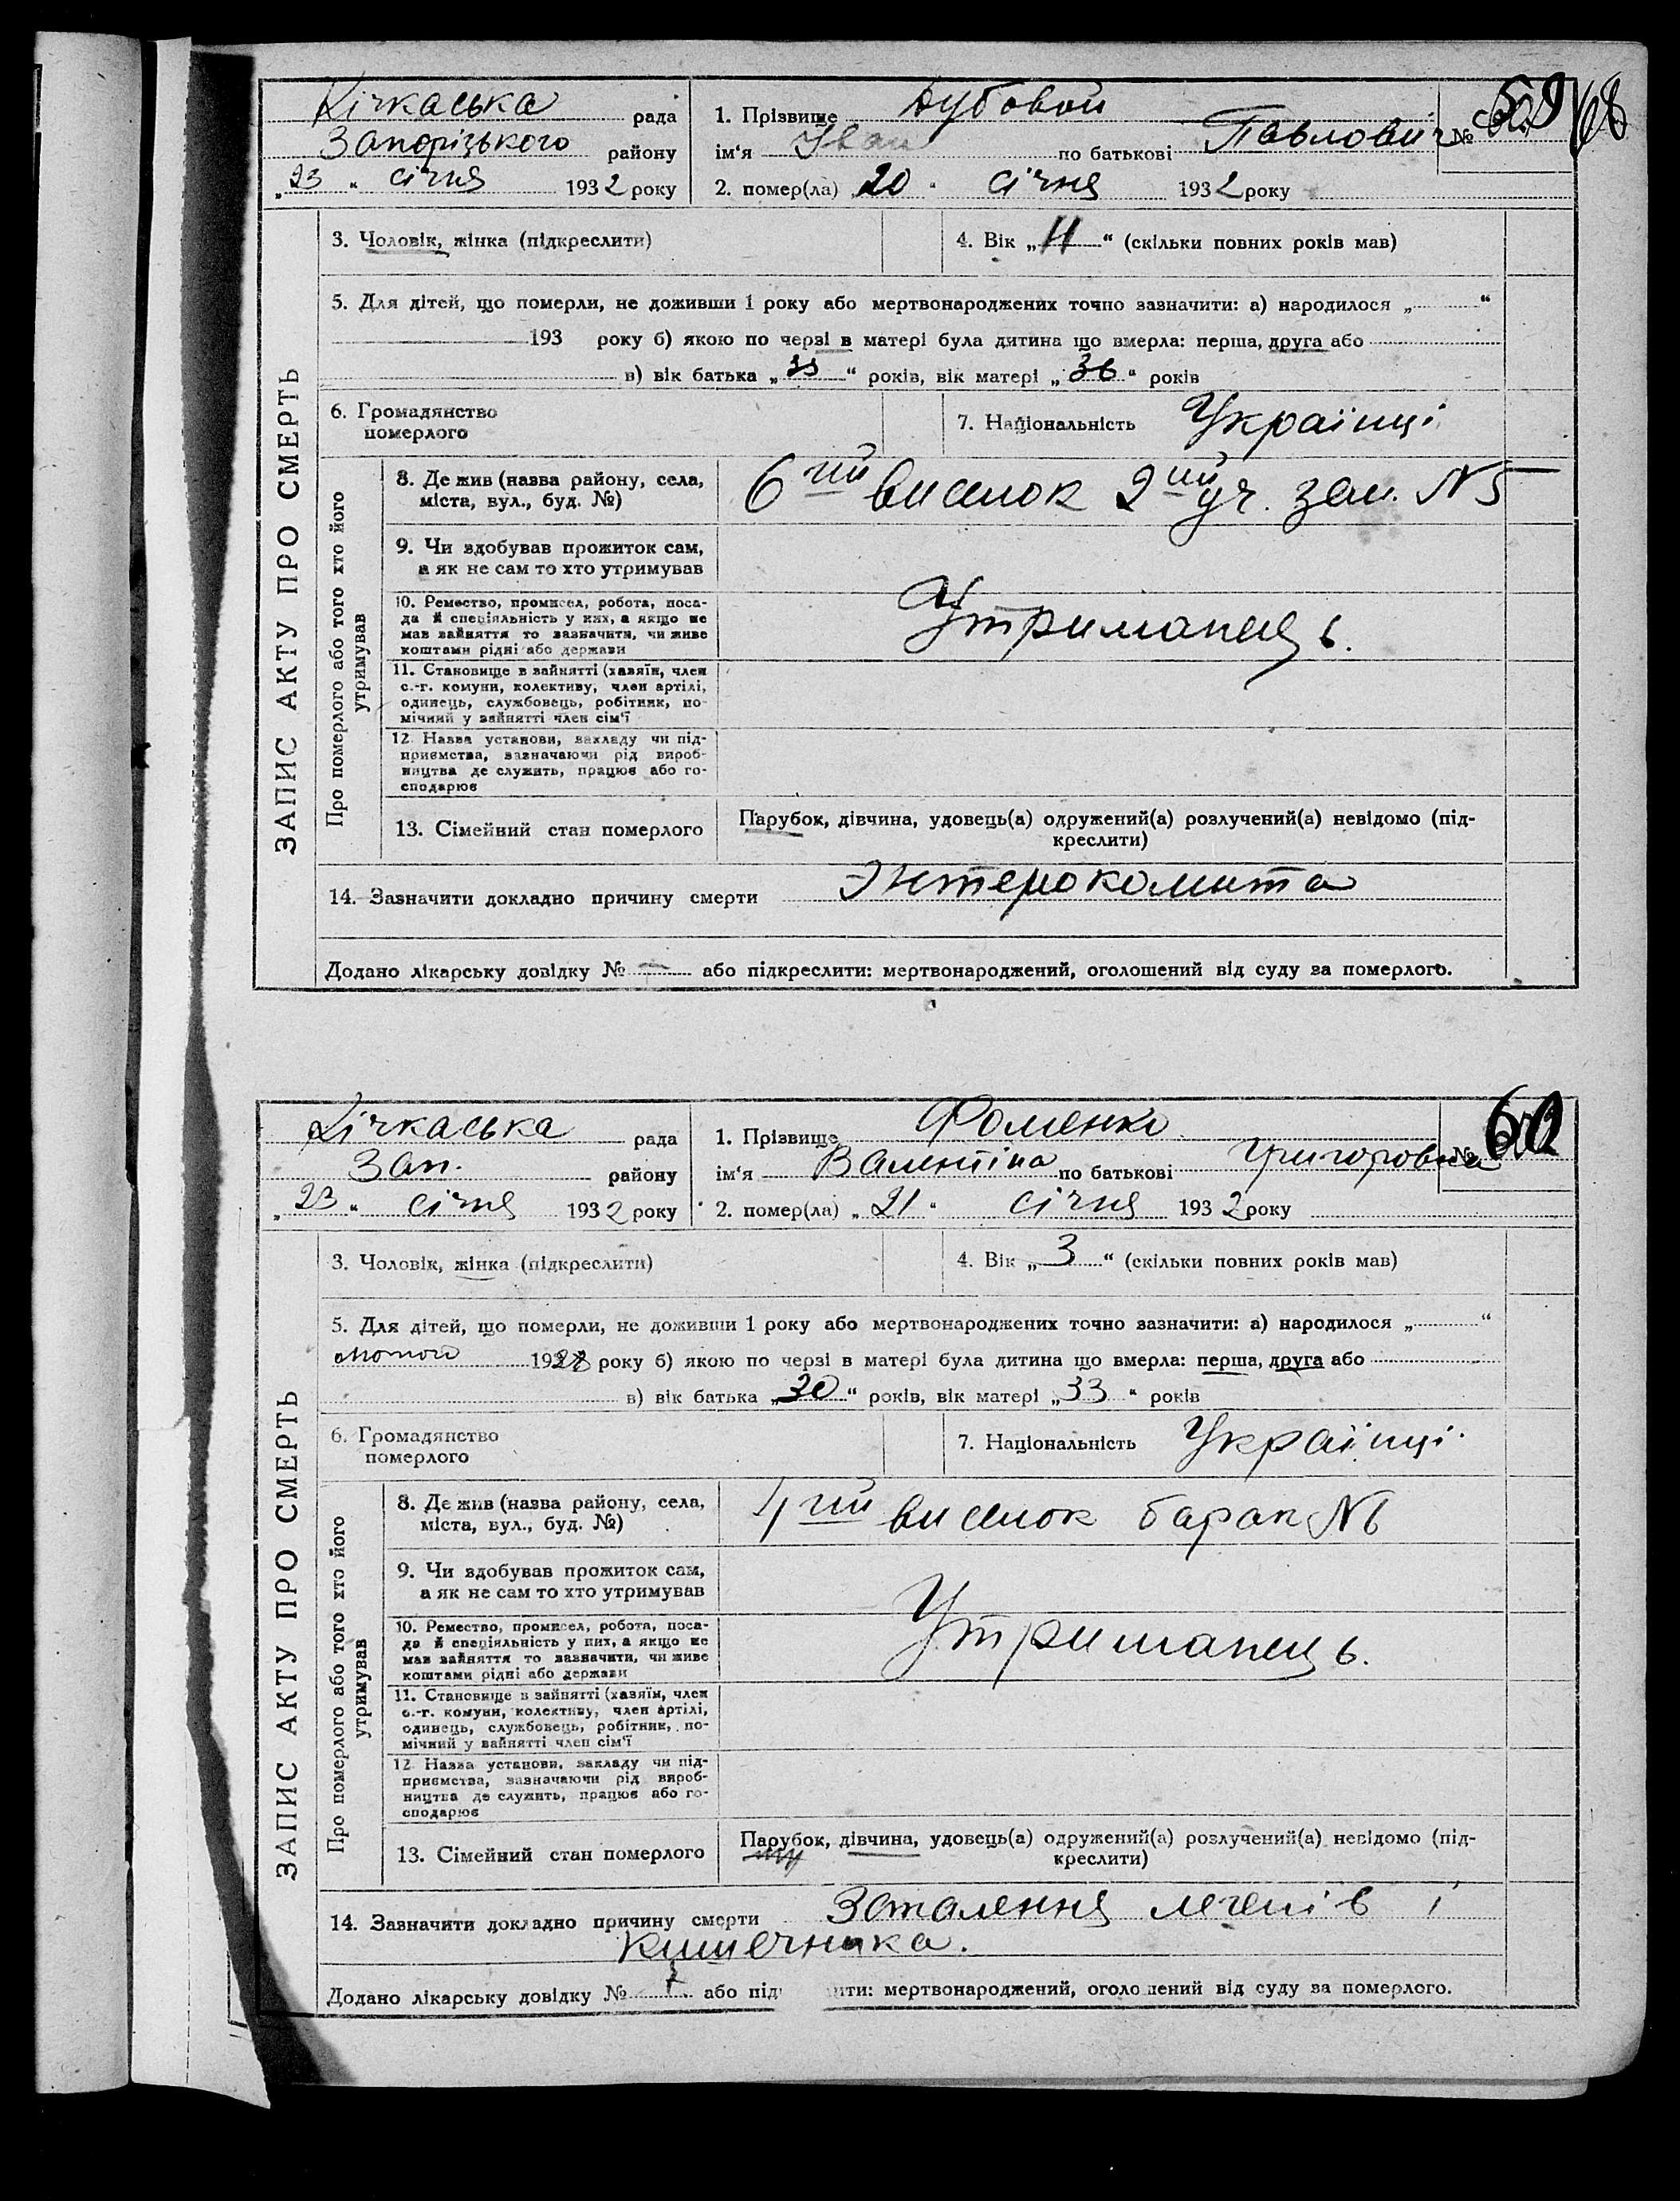 Кічкаська рада
Запорізького району
„23“ січня 1932 року
1. Прізвище Дубовой
ім'я Іван по батькові Павлович
№ 59
68
2. помер(ла) „20“ січня 1932 року
ЗАПИС АКТУ ПРО СМЕРТЬ
3. Чоловік, жінка (підкреслити)
4. Вік „11“ (скільки повних років мав)
5. Для дітей, що померли, не доживши 1 року або мертвонароджених точно зазначити: а) народилося „ “
193 року б) якою по черзі в матері була дитина що вмерла: перша, друга або
в) вік батька „ “ років, вік матері „36“ років
6. Громадянство
померлого
7. Національність Українці
Про померлого або того хто його
утримував
8. Де жив (назва району, села,
міста, вул., буд. №)
6ий виселок 2ий уч. зем. N5
9. Чи здобував прожиток сам,
а як не сам то хто утримував
10. Ремество, промисел, робота, поса-
да й спеціяльність у них, а якщо не
мав зайняття то зазначити, чи живе
коштами рідні або держави
Утриманець.
11. Становище в зайнятті (хазяїн, член
с.-г. комуни, колективу, член артілі,
одинець, службовець, робітник, по-
мічний у зайнятті член сім'ї
12 Назва установи, закладу чи під-
приємства, зазначаючи рід вироб-
ництва де служить, працює або го-
сподарює
13. Сімейний стан померлого
Парубок, дівчина, удовець(а) одружений(а) розлучений(а) невідомо (під-
креслити)
14. Зазначити докладно причину смерти Энтероколита
Додано лікарську довідку № — або підкреслити: мертвонароджений, оголошений від суду за померлого.
Кічкаська рада
Зап. району
„23“ січня 1932 року
1. Прізвище Фоменко
ім'я Валентіна по батькові Григоровна
№ 60
2. помер(ла) „21“ січня 1932 року
ЗАПИС АКТУ ПРО СМЕРТЬ
3. Чоловік, жінка (підкреслити)
4. Вік „3“ (скільки повних років мав)
5. Для дітей, що померли, не доживши 1 року або мертвонароджених точно зазначити: а) народилося „ “
лютого 1928 року б) якою по черзі в матері була дитина що вмерла: перша, друга або
в) вік батька „30“ років, вік матері „33“ років
6. Громадянство
померлого
7. Національність Українці
Про померлого або того хто його
утримував
8. Де жив (назва району, села,
міста, вул., буд. №)
4ий виселок барак N6
9. Чи здобував прожиток сам,
а як не сам то хто утримував
10. Ремество, промисел, робота, поса-
да й спеціяльність у них, а якщо не
мав зайняття то зазначити, чи живе
коштами рідні або держави
Утриманець.
11. Становище в зайнятті (хазяїн, член
с.-г. комуни, колективу, член артілі,
одинець, службовець, робітник, по-
мічний у зайнятті член сім'ї
12 Назва установи, закладу чи під-
приємства, зазначаючи рід вироб-
ництва де служить, працює або го-
сподарює
13. Сімейний стан померлого
Парубок, дівчина, удовець(а) одружений(а) розлучений(а) невідомо (під-
креслити)
14. Зазначити докладно причину смерти Запалення легенів і
кишечника.
Додано лікарську довідку № або під ити: мертвонароджений, оголо ений від суду за померлого.